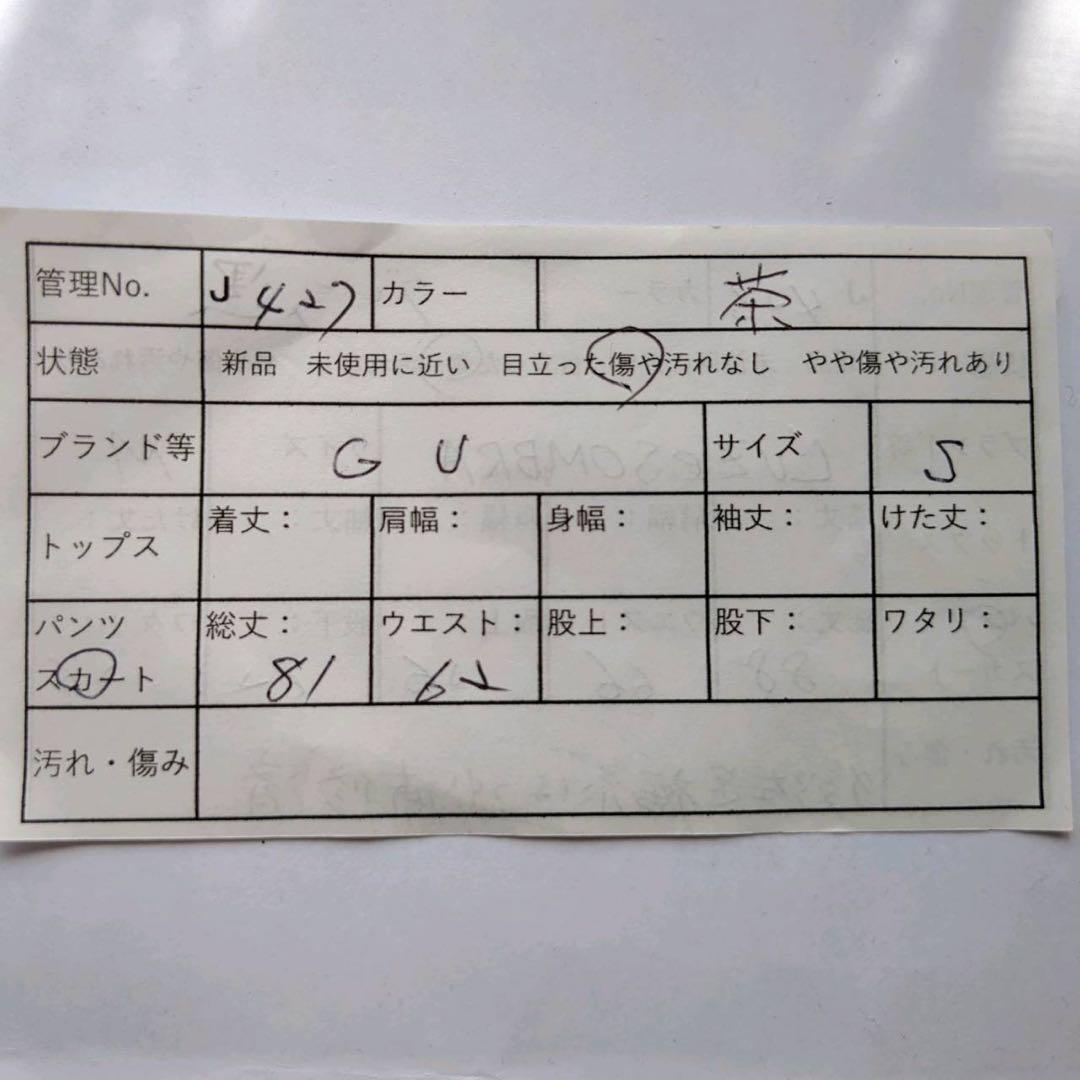 管理No. J 427 カラー 茶
状態 新品 未使用に近い 目立った傷や汚れなし やや傷や汚れあり
ブランド等 GU サイズ S
トップス 着丈： 肩幅： 身幅： 袖丈： けた丈：
パンツ 総丈： ウエスト： 股上： 股下： ワタリ：
スカート 81 62
汚れ・傷み